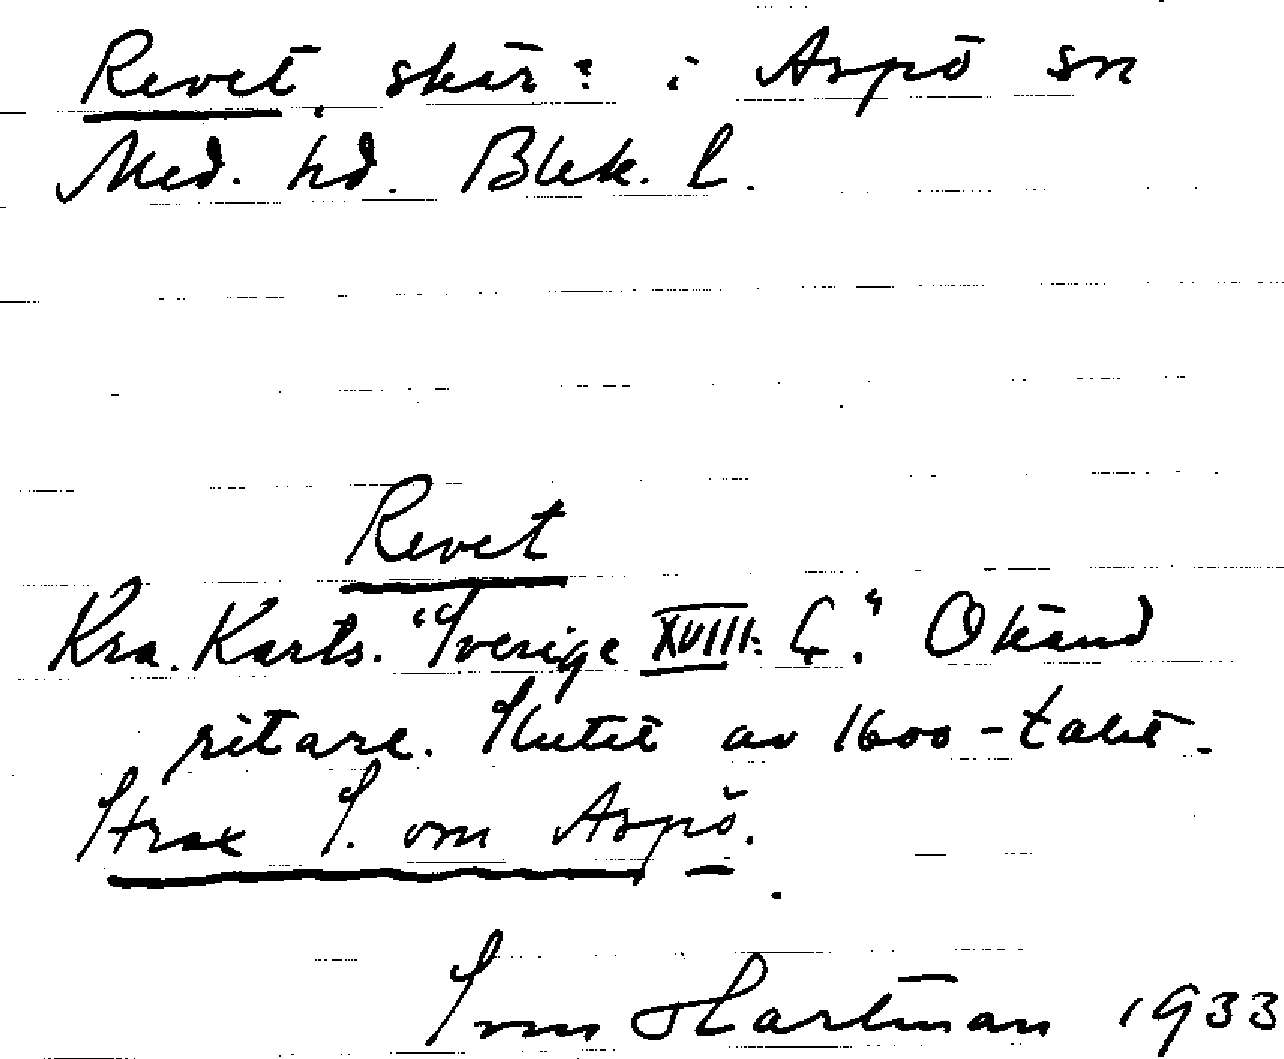 Revet, skär: i Aspö sn
Med. hd. Blek. l.
Revet
Kra. Karts. "Sverige XVIII: 4." Okänd
ritare. Slutet av 1600-talet.
Strax S. om Aspö.
Sven Hartman 1933